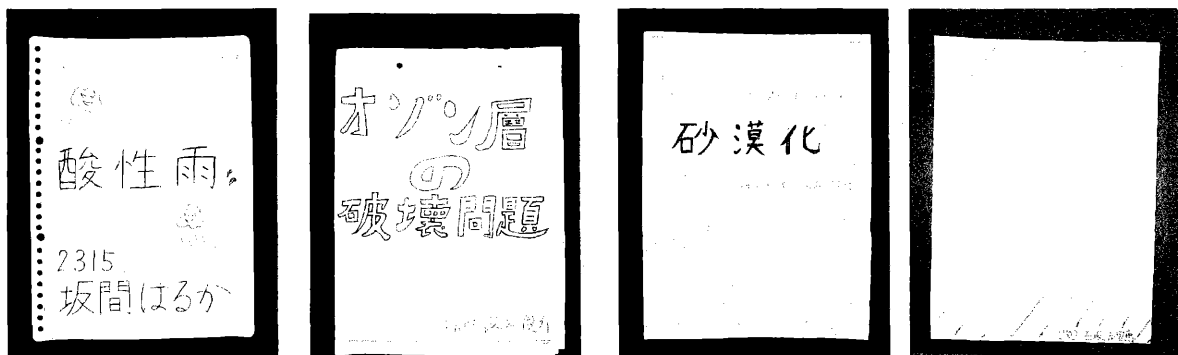 酸性雨。
2315
坂間はるか
オゾン層
の
破壊問題
砂漠化